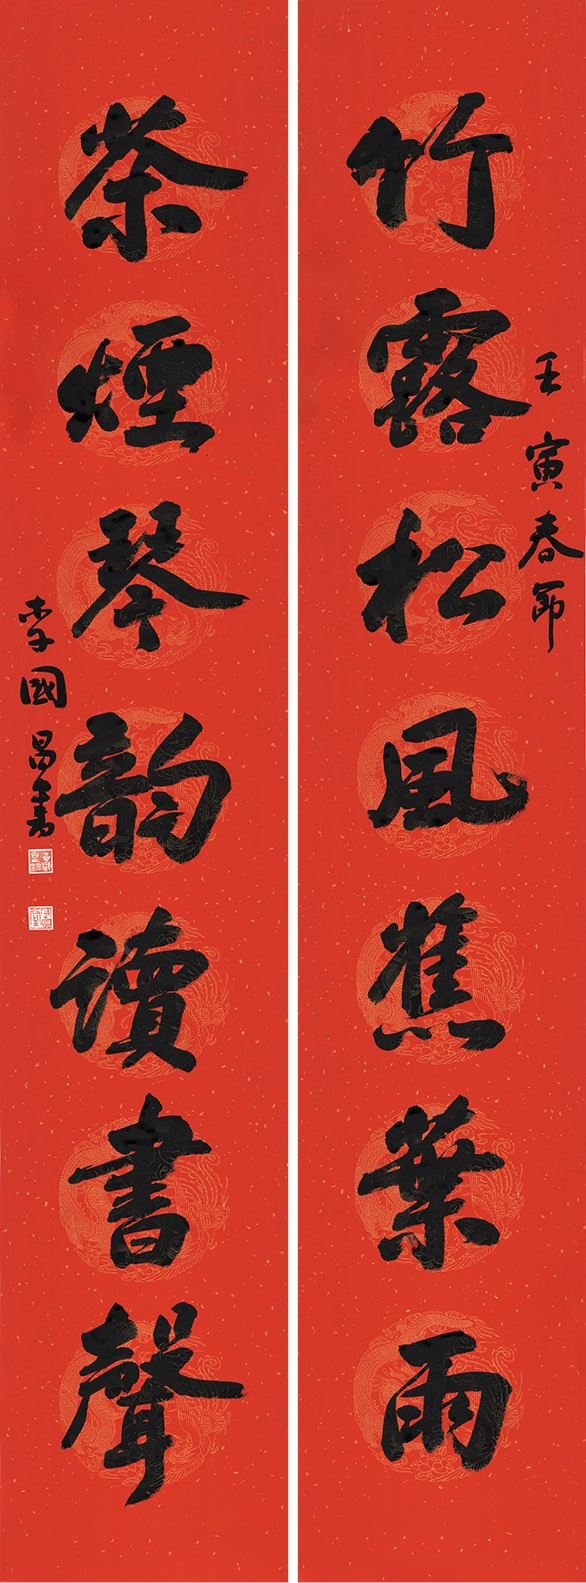 壬寅春節
竹露松風蕉葉雨
茶煙琴韵讀書聲
李國昌書